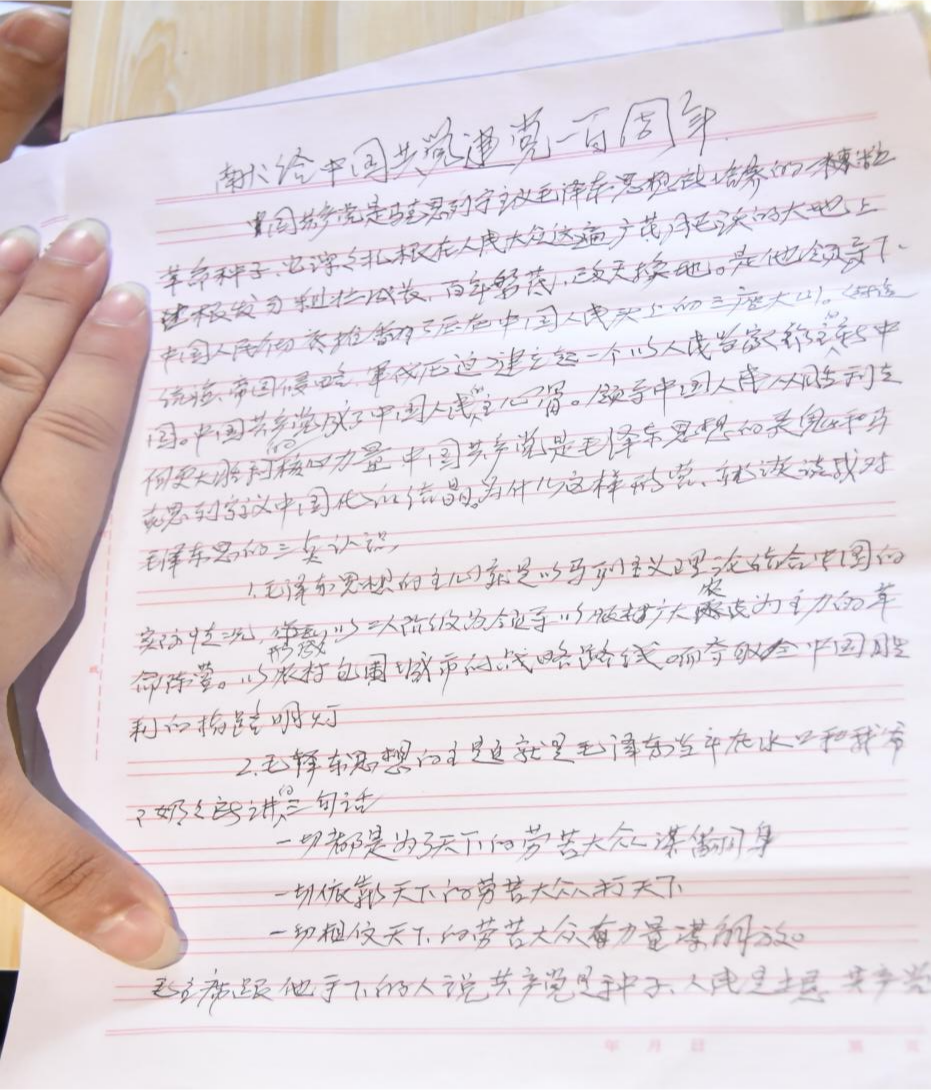 献给中国共党建党一百周年
中国共产党是马克思列宁主义毛泽东思想培养的一棵粒
革命种子,它深深扎根在人民大众这遍广茂的大地上
生根发牙利壮成长,百年繁茂,改天换地。是他领导下、
中国人民推翻了压在中国人民头上的三座大山。
统治、帝国侵略、军伐压迫建立起一个以人民当家的主新中
国。中国共产党成了中国人民的主心骨。领导中国人民从胜利走
向更大胜利的核心力量 中国共产党是毛泽东思想的灵魂和马
克思列宁主义中国化的结晶。为什么这样形容,就谈谈我对
毛泽东思的三点认识,
1.毛泽东思想的主心就是以马列主义理论结合中国的
实际情况,形成以工人阶级为领导以农村广大农民为主力的革
命阵营。以农村包围城市的战略路线。而夺取全中国胜
利的指路明灯
2.毛泽东思想的主是就是毛泽东当年在水口和我
奶讲的三句话
一切都是为了天下的劳苦大众谋翻身
一切依靠天下的劳苦大众打天下
一切相信天下的劳苦大众有力量谋解放。
毛主席跟他手下的人说共产党是种子、人民是土 共产党
年 月 日 第 页